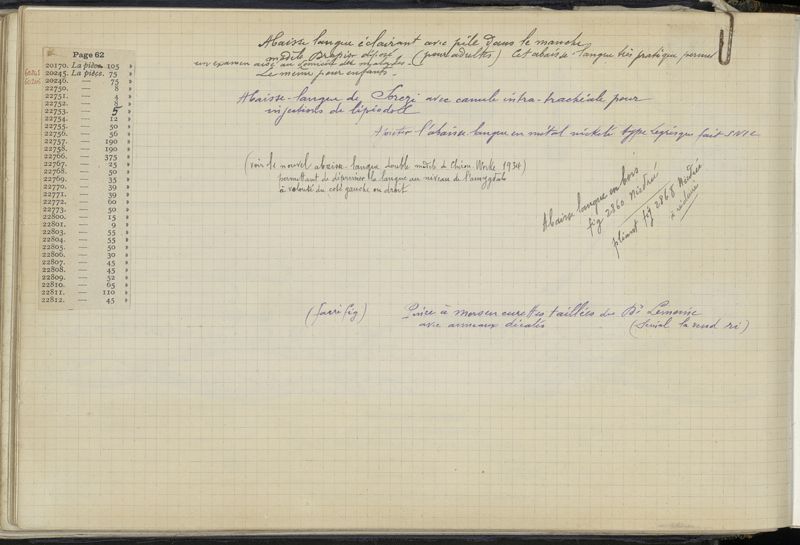 Page 62
20170. La pièce. 105 »
20245. La pièce. 75 »
20246. — 75 »
22750. — 8 »
22751. — 4 »
22752. — 8 »
22753. — 5 »
22754. — 12 »
22755. — 50 »
22756. — 56 »
22757. — 190 »
22758. — 190 »
22766. — 375 »
22767. — 25 »
22768. — 50 »
22769. — 35 »
22770. — 39 »
22771. — 39 »
22772. — 60 »
22773. — 50 »
22800. — 15 »
22801. — 9 »
22803. — 55 »
22804. — 55 »
22805. — 50 »
22806. — 30 »
22807. — 45 »
22808. — 45 »
22809. — 52 »
22810. — 65 »
22811. — 110 »
22812. — 45 »
Abaisse langue éclairant avec pile dans le manche
modèle Drapier déposé (pour adultes) Cet abaisse-langue très pratique permet
un examen aisé
Le même pour enfants.
Abaisse-langue de avec canule intra-trachéale pour
injections de lipiodol
l'abaisse langue en métal nickelé type
(voir le nouvel abaisse-langue double modèle de 1934)
permettant de déprimer la langue au niveau de l'amygdale
à volonté du coté gauche ou droit
Abaisse langue en bois
fig 2860
pliant fig 2868
à réduire
fig) Pince à morceaux curettes taillées du Dr Lemoine
avec anneaux décalés